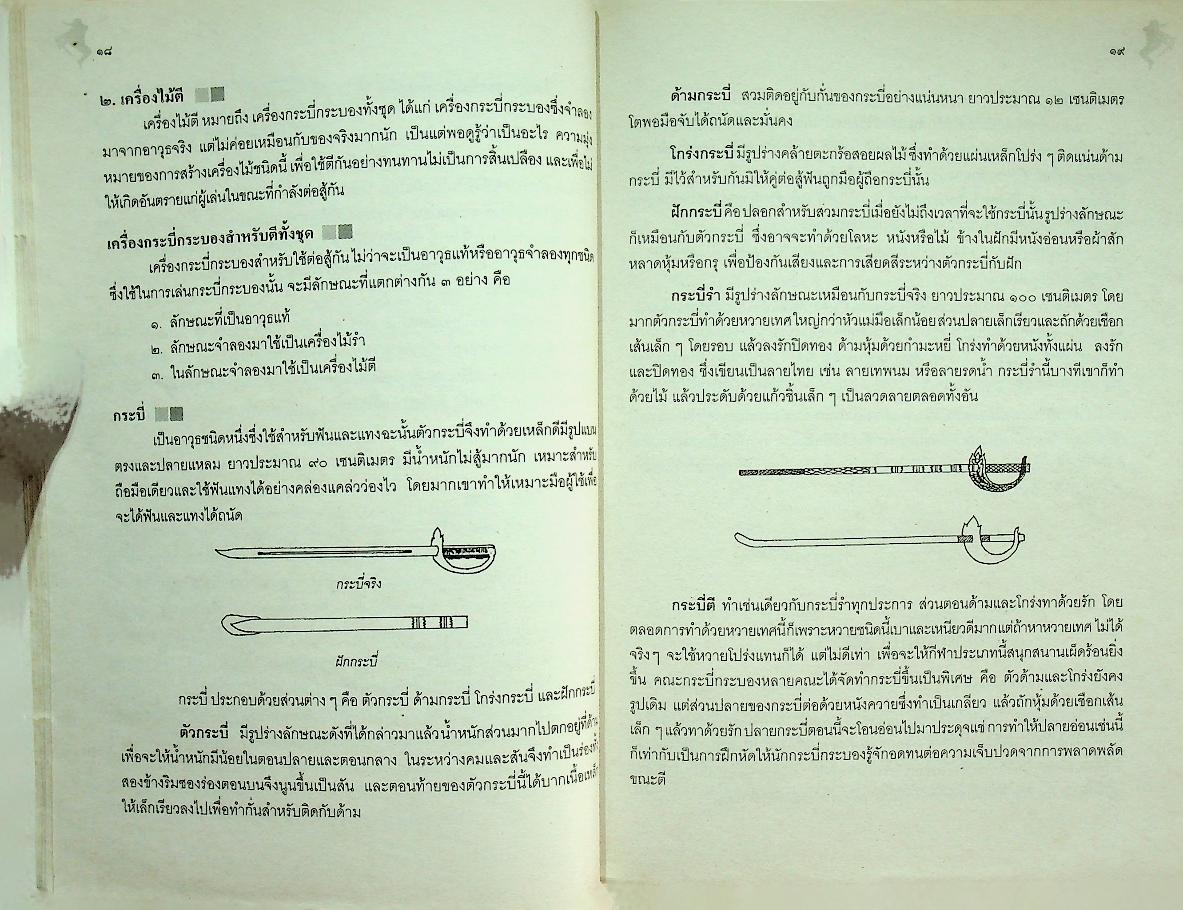 ๑๘
๒. เครื่องไม้ตี
เครื่องไม้ตี หมายถึง เครื่องกระบี่กระบองทั้งชุด ได้แก่ เครื่องกระบี่กระบองซึ่งจำลอง
มาจากอาวุธจริง แต่ไม่ค่อยเหมือนกับของจริงมากนัก เป็นแต่พอดูรู้ว่าเป็นอะไร ความมุ่ง
หมายของการสร้างเครื่องไม้ชนิดนี้ เพื่อใช้ตีกันอย่างทนทานไม่เป็นการสิ้นเปลือง และเพื่อไม่
ให้เกิดอันตรายแก่ผู้เล่นในขณะที่กำลังต่อสู้กัน
เครื่องกระบี่กระบองสำหรับตีทั้งชุด
เครื่องกระบี่กระบองสำหรับใช้ต่อสู้กัน ไม่ว่าจะเป็นอาวุธแท้หรืออาวุธจำลองทุกชนิด
ซึ่งใช้ในการเล่นกระบี่กระบองนั้น จะมีลักษณะที่แตกต่างกัน ๓ อย่าง คือ
๑. ลักษณะที่เป็นอาวุธแท้
๒. ลักษณะจำลองมาใช้เป็นเครื่องไม้รำ
๓. ในลักษณะจำลองมาใช้เป็นเครื่องไม้ตี
กระบี่
เป็นอาวุธชนิดหนึ่งซึ่งใช้สำหรับฟันและแทงฉะนั้นตัวกระบี่จึงทำด้วยเหล็กดีมีรูปแบน
ตรงและปลายแหลม ยาวประมาณ ๙๐ เซนติเมตร มีน้ำหนักไม่สู้มากนัก เหมาะสำหรับ
ถือมือเดียวและใช้ฟันแทงได้อย่างคล่องแคล่วว่องไว โดยมากเขาทำให้เหมาะมือผู้ใช้เพื่อ
จะได้ฟันและแทงได้ถนัด
กระบี่จริง
ฝักกระบี่
กระบี่ ประกอบด้วยส่วนต่าง ๆ คือ ตัวกระบี่ ด้ามกระบี่ โกร่งกระบี่ และฝักกระบี่
ตัวกระบี่ มีรูปร่างลักษณะดังที่ได้กล่าวมาแล้วน้ำหนักส่วนมากไปตกอยู่ที่ด้าม
เพื่อจะให้น้ำหนักมีน้อยในตอนปลายและตอนกลาง ในระหว่างคมและสันจึงทำเป็นร่องทั้ง
สองข้างริมของร่องตอนบนจึงนูนขึ้นเป็นสัน และตอนท้ายของตัวกระบี่นี้ได้บากเนื้อเหล็ก
ให้เล็กเรียวลงไปเพื่อทำกั่นสำหรับติดกับด้าม
๑๙
ด้ามกระบี่ สวมติดอยู่กับกั่นของกระบี่อย่างแน่นหนา ยาวประมาณ ๑๒ เซนติเมตร
โตพอมือจับได้ถนัดและมั่นคง
โกร่งกระบี่ มีรูปร่างคล้ายตะกร้อสอยผลไม้ ซึ่งทำด้วยแผ่นเหล็กโปร่ง ๆ ติดแน่นด้าม
กระบี่ มีไว้สำหรับกันมิให้คู่ต่อสู้ฟันถูกมือผู้ถือกระบี่นั้น
ฝักกระบี่ คือ ปลอกสำหรับสวมกระบี่เมื่อยังไม่ถึงเวลาที่จะใช้กระบี่นั้นรูปร่างลักษณะ
ก็เหมือนกับตัวกระบี่ ซึ่งอาจจะทำด้วยโลหะ หนังหรือไม้ ข้างในฝักมีหนังอ่อนหรือผ้าสัก
หลาดหุ้มหรือกรุ เพื่อป้องกันเสียงและการเสียดสีระหว่างตัวกระบี่กับฝัก
กระบี่รำ มีรูปร่างลักษณะเหมือนกับกระบี่จริง ยาวประมาณ ๑๐๐ เซนติเมตร โดย
มากตัวกระบี่ทำด้วยหวายเทศ ใหญ่กว่าหัวแม่มือเล็กน้อยส่วนปลายเล็กเรียวและถักด้วยเชือก
เส้นเล็ก ๆ โดยรอบ แล้วลงรักปิดทอง ด้ามหุ้มด้วยกำมะหยี่ โกร่งทำด้วยหนังทั้งแผ่น ลงรัก
และปิดทอง ซึ่งเขียนเป็นลายไทย เช่น ลายเทพนม หรือลายรดน้ำ กระบี่รำนี้บางทีเขาก็ทำ
ด้วยไม้ แล้วประดับด้วยแก้วชิ้นเล็ก ๆ เป็นลวดลายตลอดทั้งอัน
กระบี่ตี ทำเช่นเดียวกับกระบี่รำทุกประการ ส่วนตอนด้ามและโกร่งทาด้วยรัก โดย
ตลอดการทำด้วยหวายเทศนี้ก็เพราะหวายชนิดนี้เบาและเหนียวดีมากแต่ถ้าหาหวายเทศ ไม่ได้
จริง ๆ จะใช้หวายโปร่งแทนก็ได้ แต่ไม่ดีเท่า เพื่อจะให้กีฬาประเภทนี้สนุกสนานเผ็ดร้อนยิ่ง
ขึ้น คณะกระบี่กระบองหลายคณะได้จัดทำกระบี่ขึ้นเป็นพิเศษ คือ ตัวด้ามและโกร่งยังคง
รูปเดิม แต่ส่วนปลายของกระบี่ต่อด้วยหนังควายซึ่งทำเป็นเกลียว แล้วถักหุ้มด้วยเชือกเส้น
เล็ก ๆ แล้วทาด้วยรัก ปลายกระบี่ตอนนี้จะโอนอ่อนไปมาประดุจแซ่ การทำให้ปลายอ่อนเช่นนี้
ก็เท่ากับเป็นการฝึกหัดให้นักกระบี่กระบองรู้จักอดทนต่อความเจ็บปวดจากการพลาดพลัด
ขณะตี